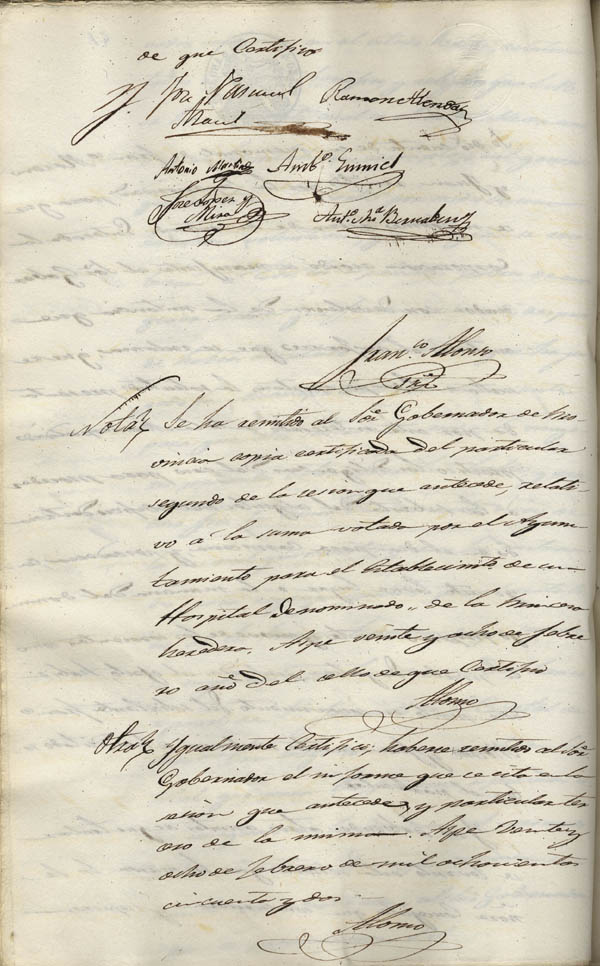 de que Certifico
Y. Jose Pascual
Ramon
Antonio Ambº. Gumiel
Jose Lopez y
Miral
Antº. Mª. Bernabeu
Franco. Alonso
Srio
Nota Se ha remitido al Sor. Gobernador de Pro-
vincia copia certificada del particular
segundo de la sesion que antecede, relati-
vo á la suma votada por el Ayun-
tamiento para el Establecimto. de un
Hospital denominado "de la Princesa
heredera. Aspe veinte y ocho de febre-
ro año del sello de que Certifico
Alonso
Otra Ygualmente Certifico; haberse remitido al Sor.
Gobernador el informe que se cita en la
sesion que antecede y particular ter-
cero de la misma. Aspe Veinte y
ocho de febrero de mil ochocientos
cincuenta y dos
Alonso